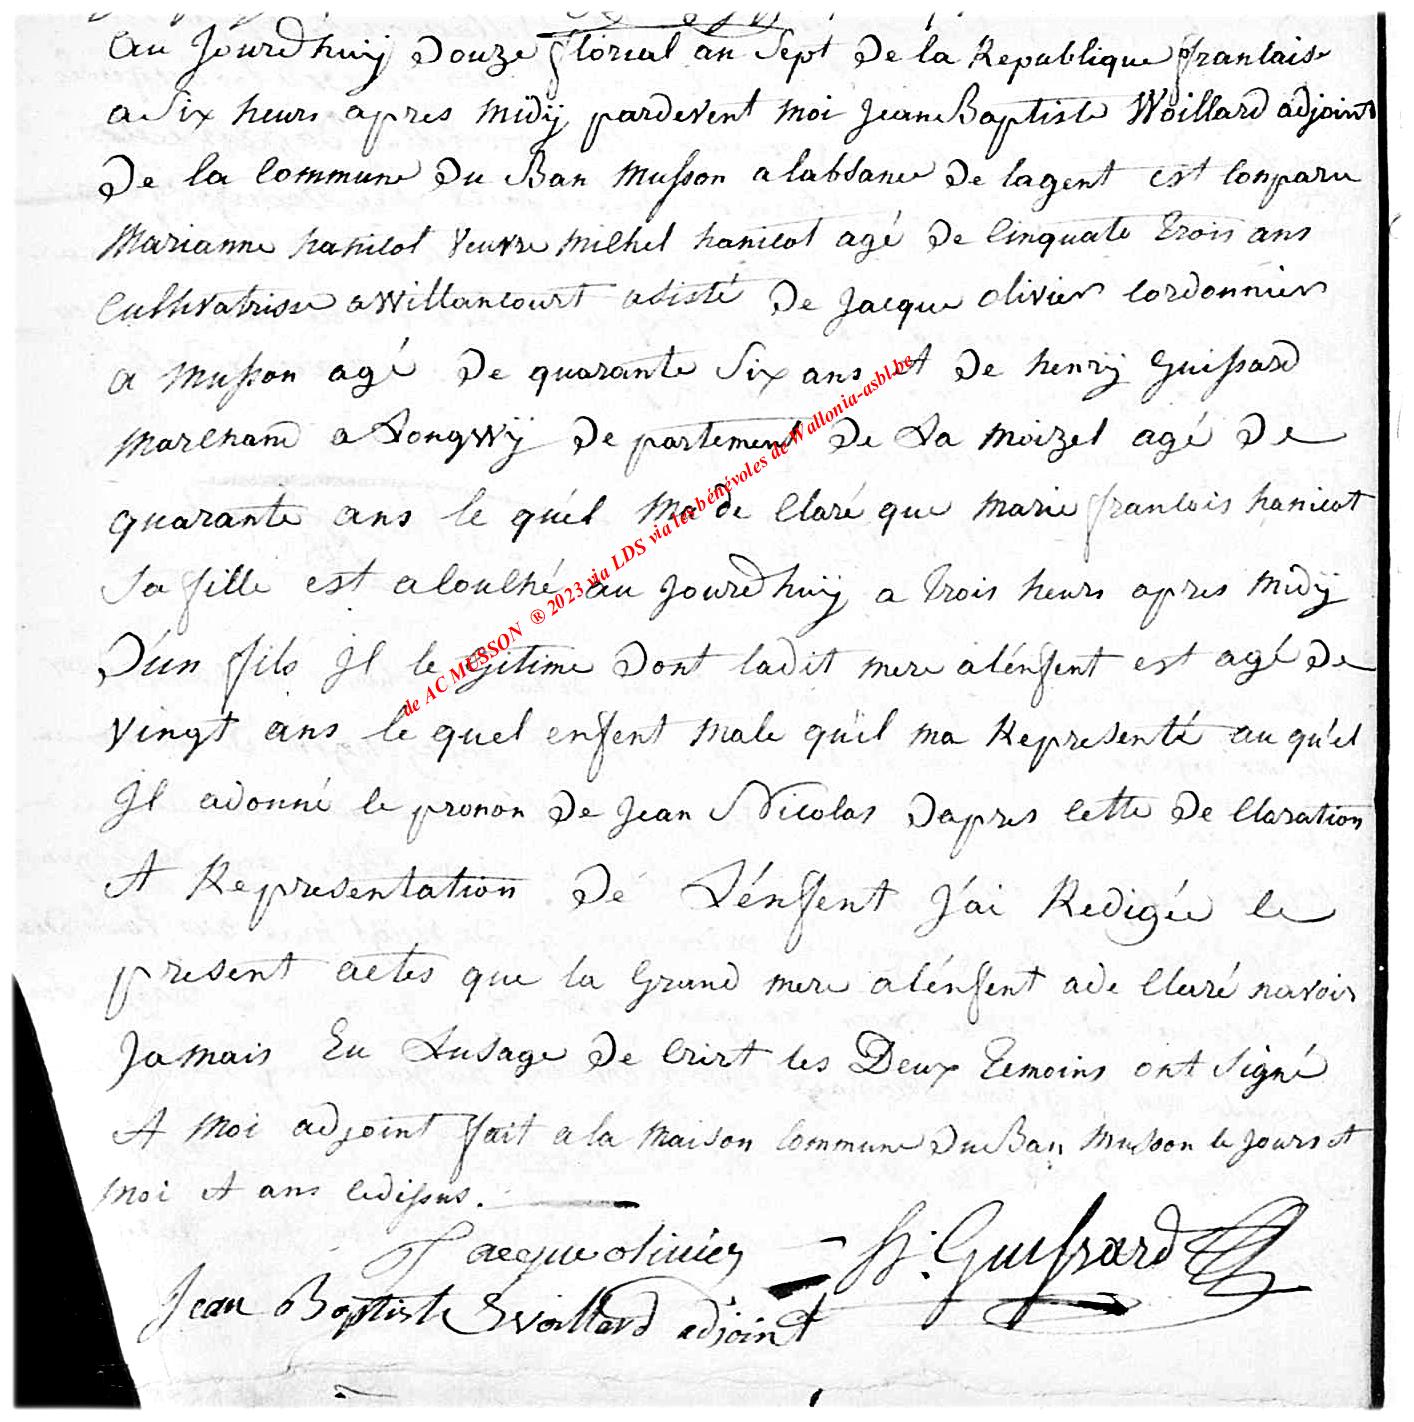 Au Jourdhuÿ Douze florial an Sept De la Republique franlaise
a Six heurs apres midÿ pardevent moi Jean Baptiste Woillard adjoint
De la Commune Du Ban Musson a labsance De lagent est Comparu
Marianne hanicot veuvre Michel hanicot agé De Cinquate Trois ans
Cultivatrisse a Willancourt asisté De Jacque olivier Cordonnier
a Musson agé De quarante Six ans et De henrÿ Guissard
Marchand a Longwÿ De partement De La Moizel agé De
quarante ans le quél Ma de Claré que Marie francois hanicot
Sa fille est a Couché au Jourdhuÿ a Trois heurs apres Midÿ
D'un fils Jl le Gitime Dont ladit mere a lénfent est agé De
Vingt ans le quel enfent Male quïl ma Representé au qu'el
Jl adonné le pronon De Jean Nicolas Dapres Cette De Claration
et Representation De L'énffent J'ai Redigée le
present actes que la Grand mere a lénfent ade Claré navoir
Jamais Eu Lusage De Crirt les Deux Temoins ont Signé
et Moi adjoint fait a la Maison Commune Du Ban Musson le Jours et
Moi et ans Cedissus.
Jacque olivier H. Guissard
Jean Baptiste Woillard adjoint
de AC MUSSON ® 2023 via LDS via les bénévoles de Wallonia-asbl.be